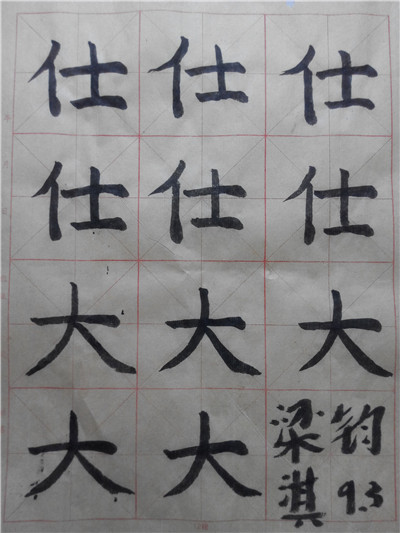 仕 仕 仕
仕 仕 仕
大 大 大
大 大
梁 钧
淇 9.3